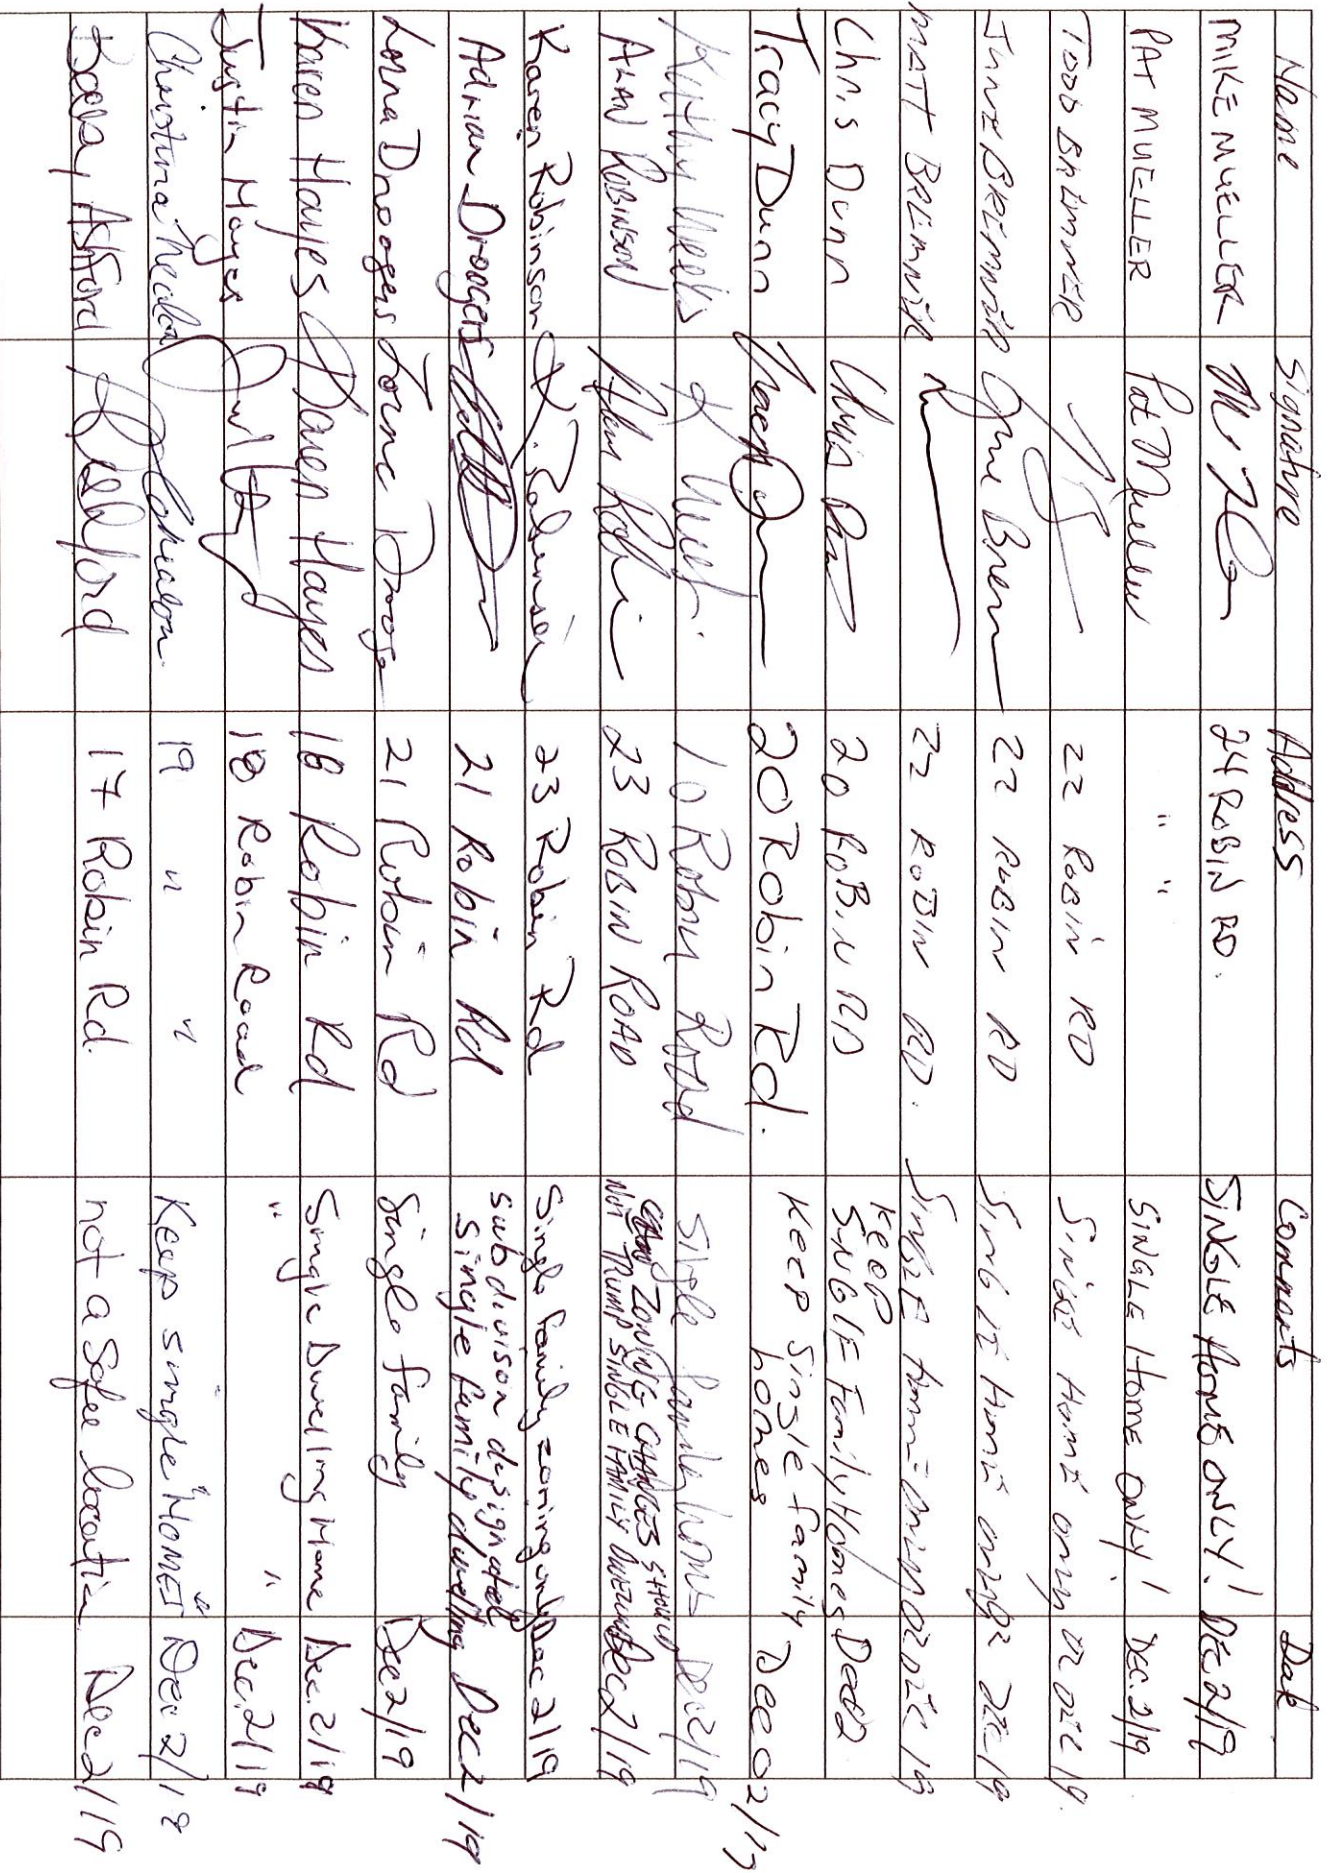 Name Signature Address Comments Date
MIKE MUELLER 24 ROBIN RD. SINGLE HOME ONLY! DEC 2/19
PAT MUELLER Pat Mueller " " SINGLE HOME ONLY! DEC. 2/19
TODD BREMNER 22 ROBIN RD SINGLE HOME only 02 DEC 19.
JUNE BREMNER June Brem 22 ROBIN RD SINGLE HOME only 02 DEC 19
MATT BREMNER 22 ROBIN RD. SINGLE HOME only 02 DEC 19
Chris Dunn Chris 20 ROBIN RD KEEP SINGLE Family Homes Dec 02
Tracy Dunn 20 Robin Rd. KEEP Single family homes Dec 02/19
Kathy 10 Robin Road Single family home Dec 2/19
ALAN ROBINSON Alan Robi 23 ROBIN ROAD ZONING CHANGES SHOULD NOT TRUMP SINGLE FAMILY DWELLING Dec 2/19
Karen Robinson K. Robinson 23 Robin Rd Single family zoning only Dec 2/19
Adrian Droogers 21 Robin Rd subdivison designated single family dwelling Dec 2/19
Lorna Droogers Lorna Drooge 21 Robin Rd Single family Dec 2/19
Karen Hayes Karen Hayes 18 Robin Rd Single Dwelling Home Dec. 2/19
Justin Hayes 18 Robin Road " " Dec. 2/19
Christina 19 " " Keep single "HOMES" Dec 2/18
Ashford Ashford 17 Robin Rd. not a safe location Dec 2/19